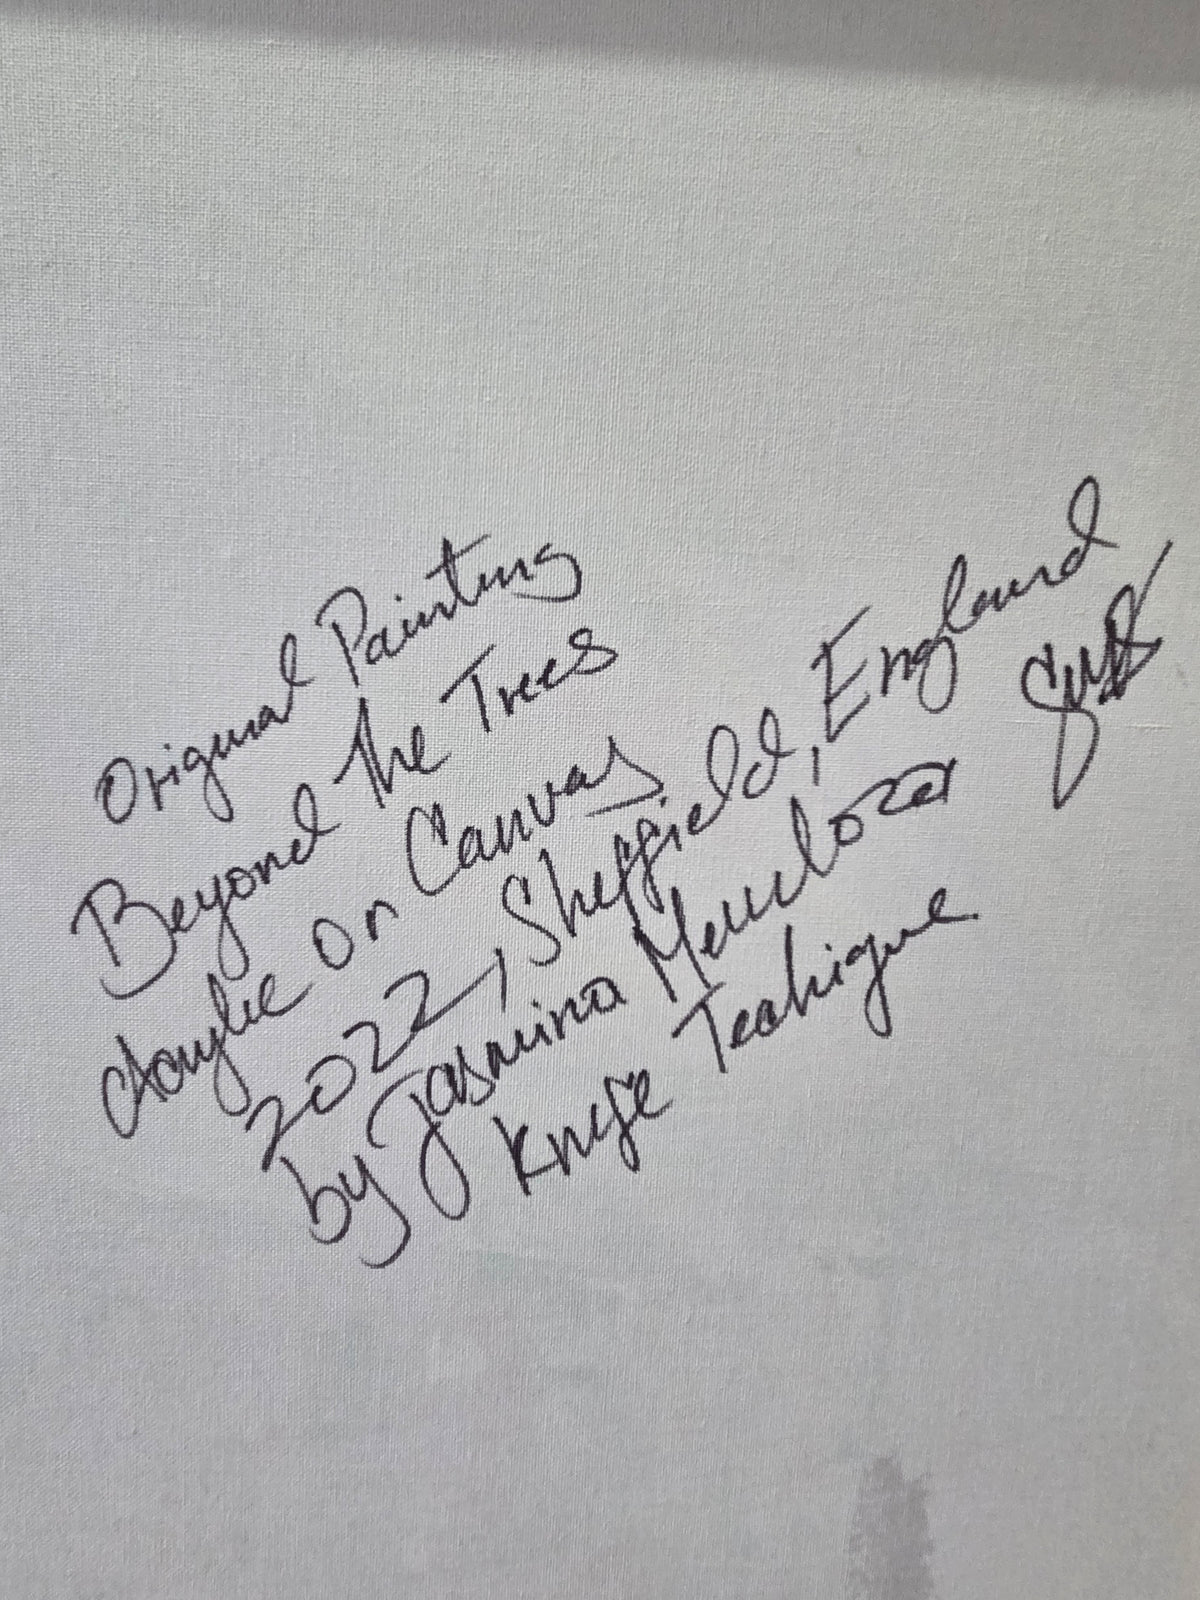 Original Painting
Beyond the Trees
Acrylic on Canvas
2022, Sheffield, England
by Jasmina Mendoza
Knife Technique